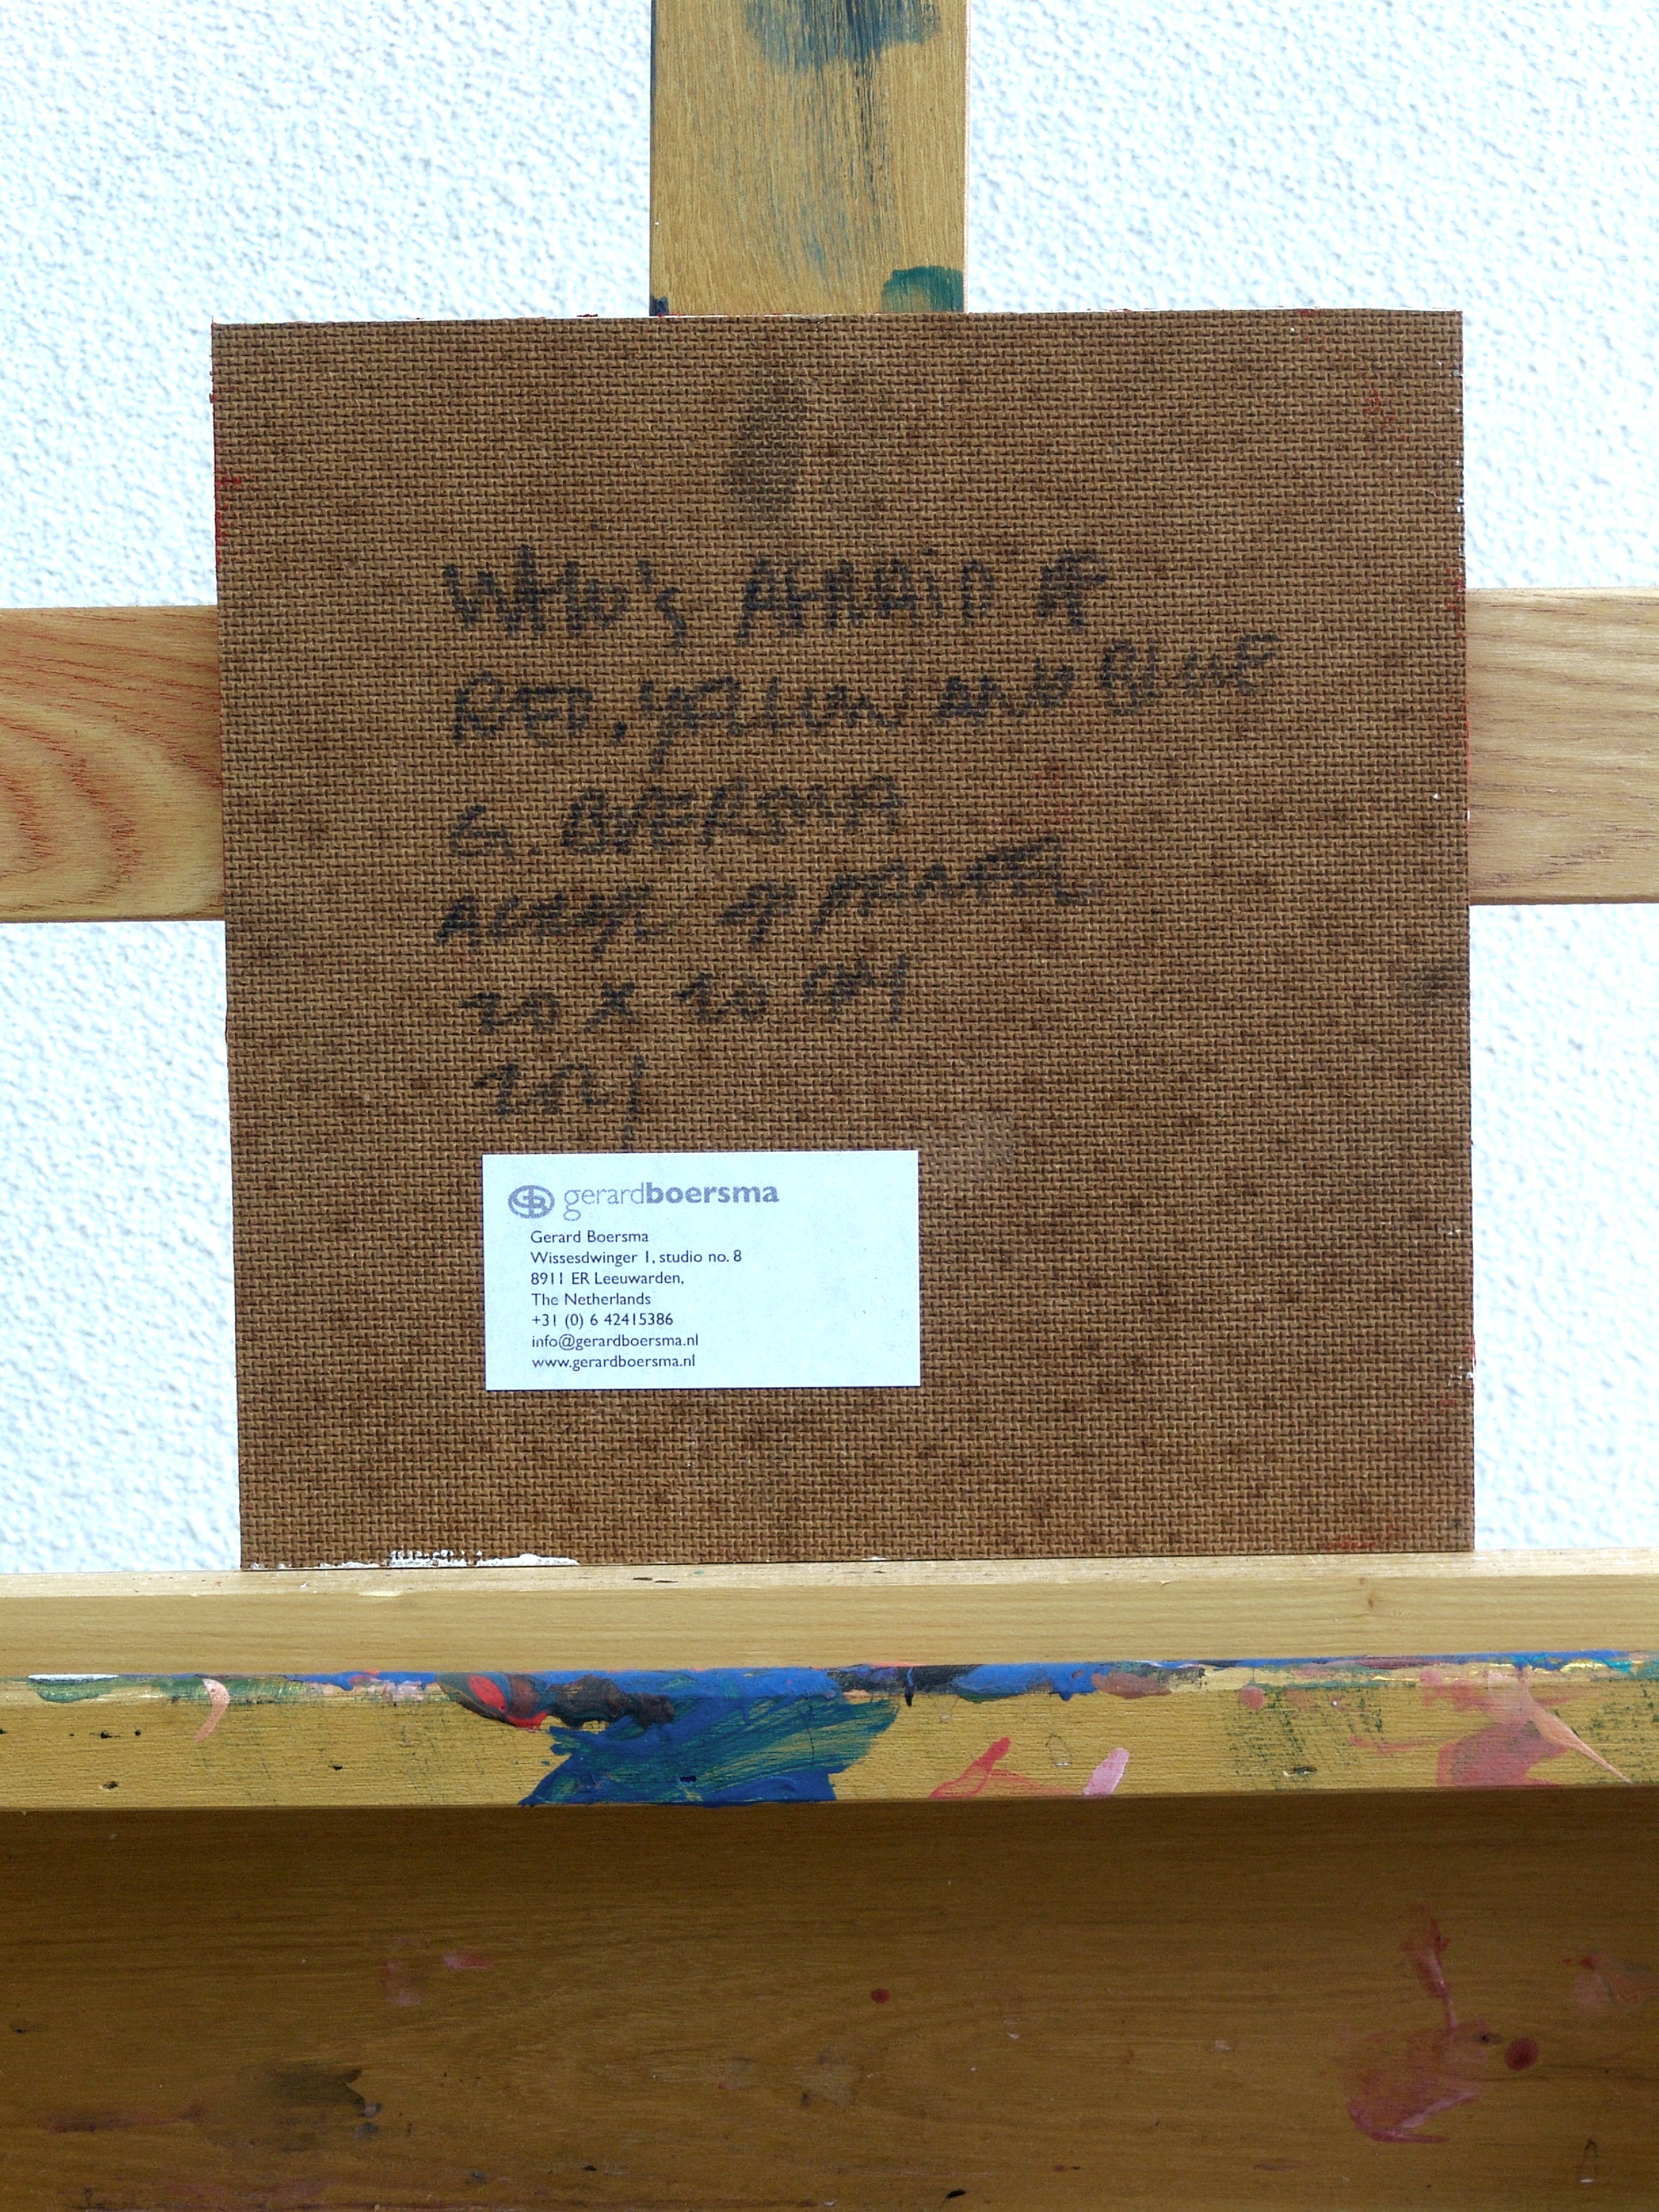 WHO'S AFRAID OF
RED, YELLOW AND BLUE
G. BOERSMA
ACRYL OP PANEEL
20 X 20 CM
2021
gerardboersma
Gerard Boersma
Wissesdwinger 1, studio no. 8
8911 ER Leeuwarden,
The Netherlands
+31 (0) 6 42415386
info@gerardboersma.nl
www.gerardboersma.nl